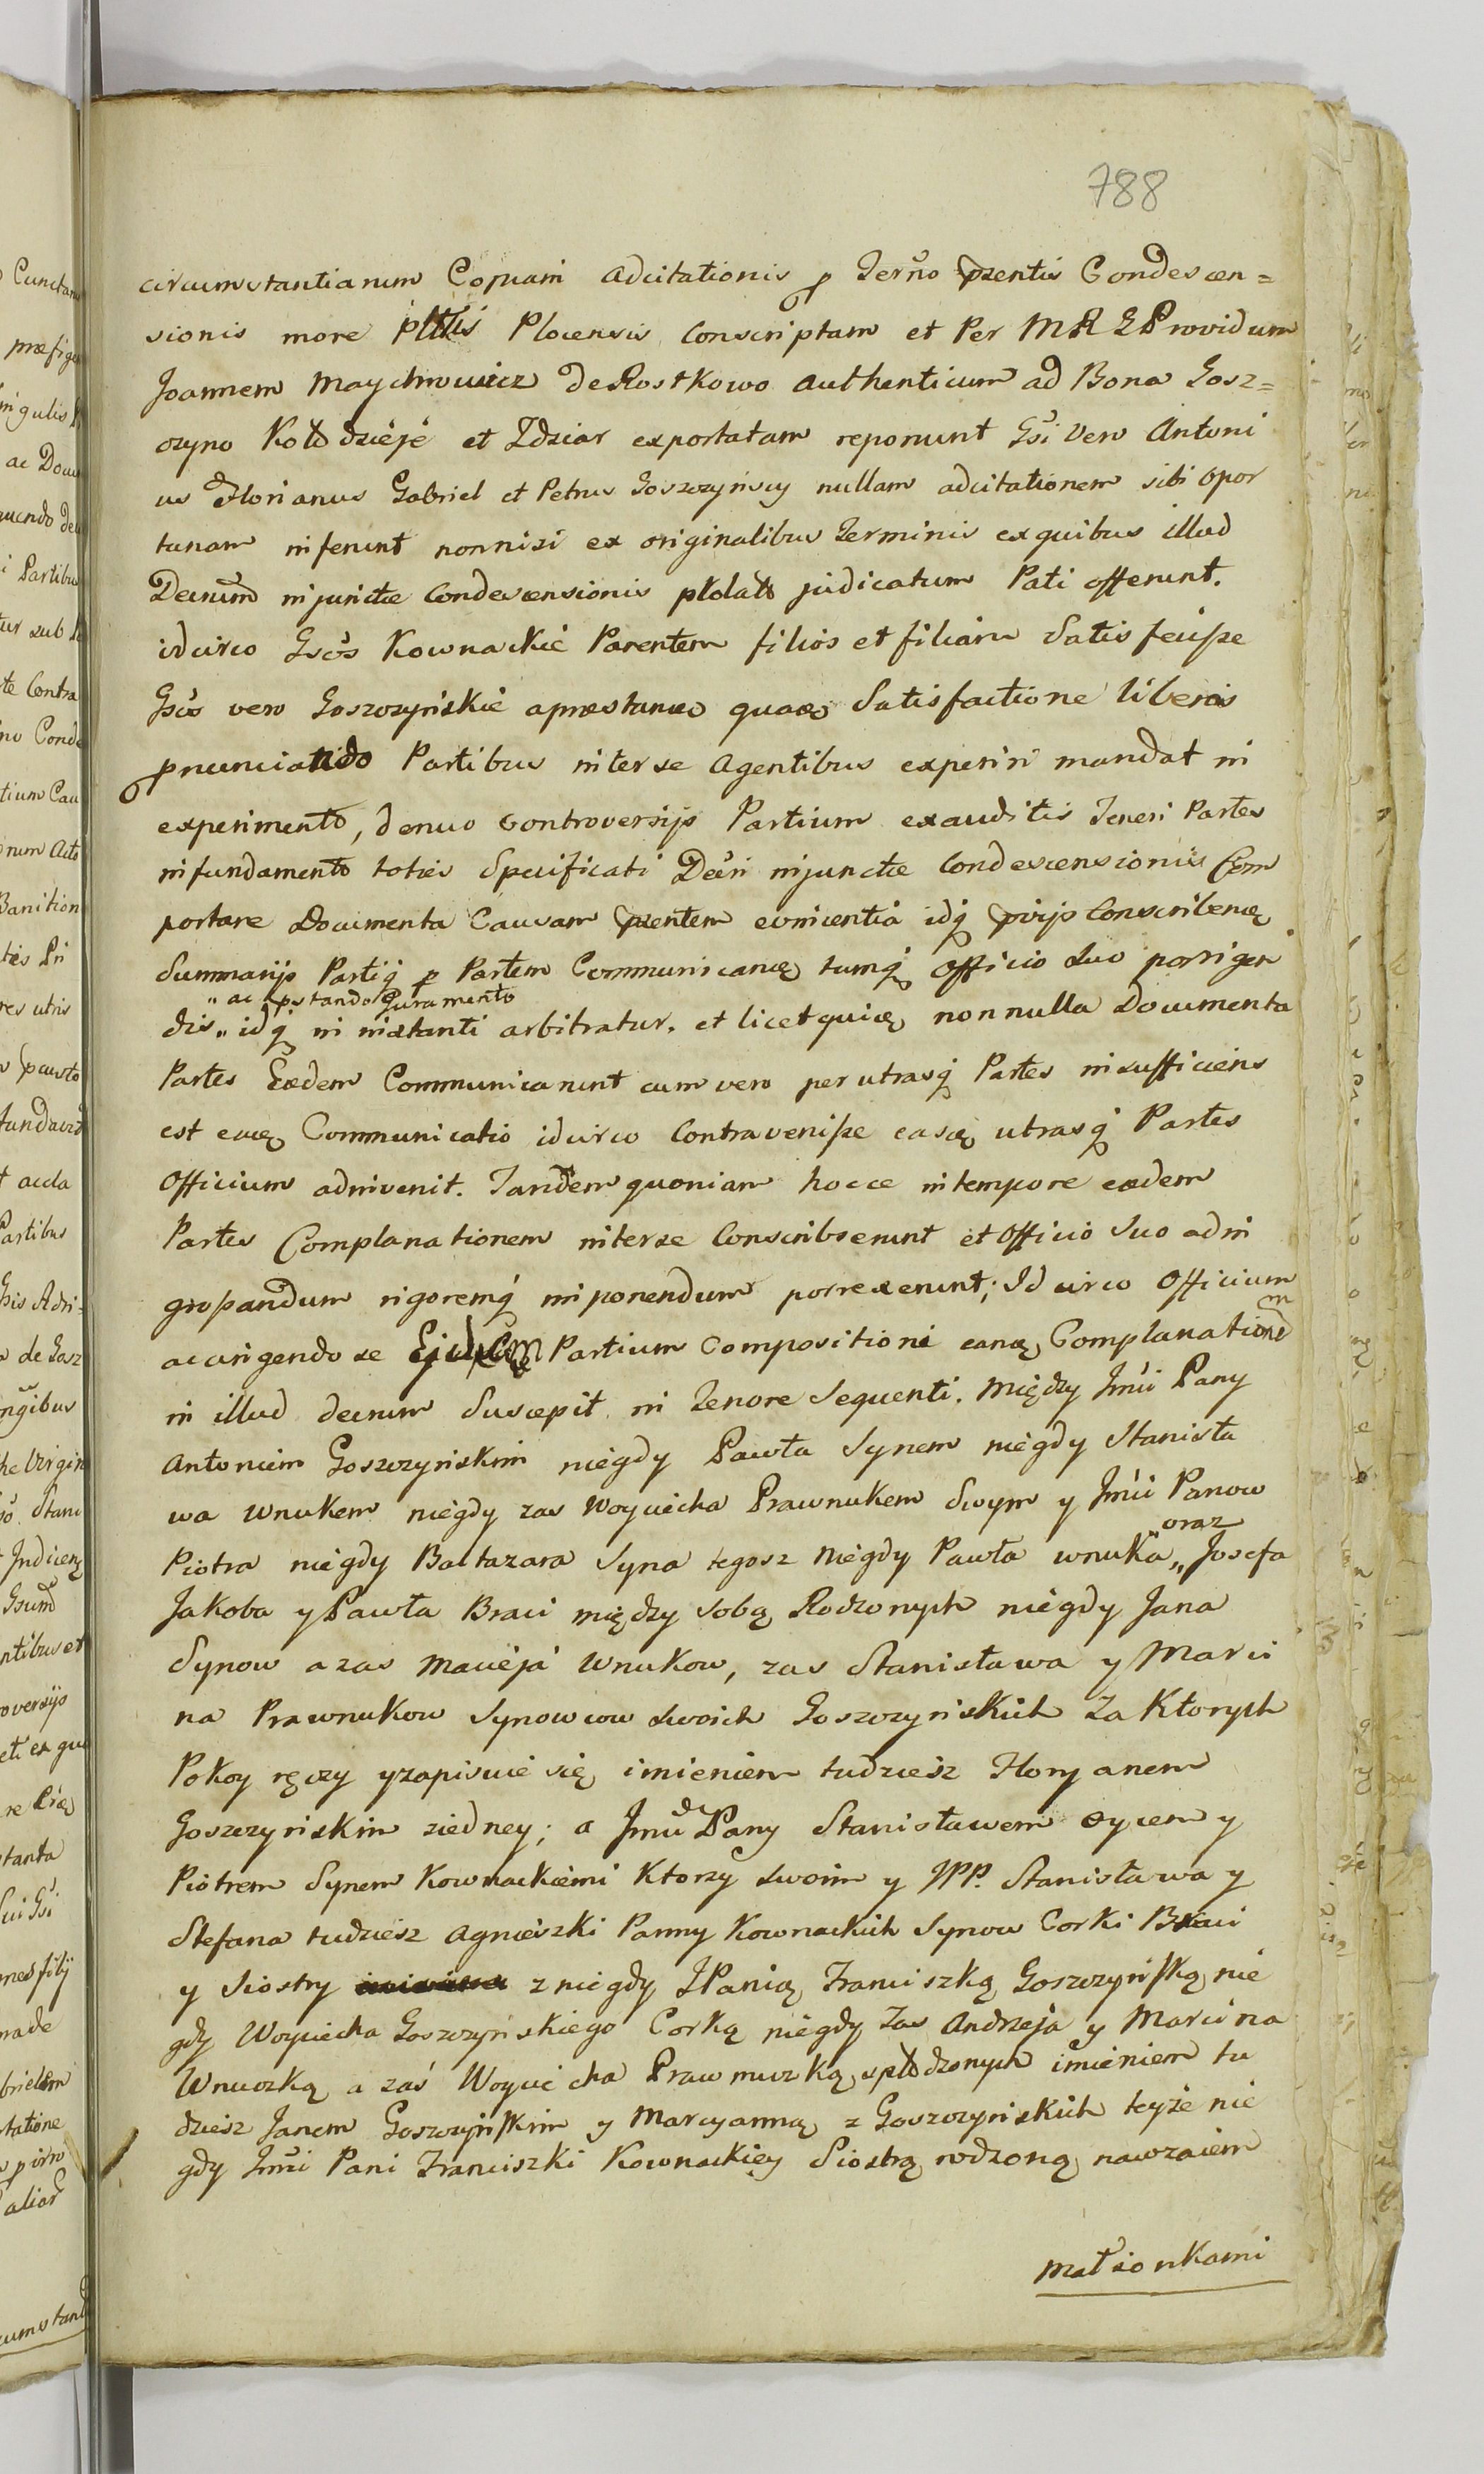 788
circumstantiarum Copiam adcitationis p Termo pzentis Condescen=
sionis more plttis Plocensis Conscriptam et Per MRLProvidum
Joannem Maychrowicz de Rostkowo authenticum ad Bona Gosz=
czyno Kołodzieje et Zdziar exportatam reponunt Gsi Vero Antoni
us Florianus Gabriel et Petrus Goszczyńscy nullam adcitationem sibi opor
tunam inferunt nonnisi ex originalibus Terminis ex quibus illud
Decrum injunctæ Condescensionis ptolato judicatum Pati offerunt.
idcirco Gsos Kownackie Parentem filios et filiam Satisfecisse
Gsos vero Goszczyńskie apræstanæ quaæ Satisfactione liberos
pnunciando Partibus inter se agentibus experiri mandat in
experimento, denuo Controversijs Partium exauditis Teneri Partes
in fundamento toties Specificati Decri injunctæ Condescensionis Com
portare Documenta Causam pzentem evincentia idq pvijs Conscribenę
Summarijs Partiq p Partem Communicanę tumq Officio Suo porrigen
„ac pstando Juramento
dis „ idq in instanti arbitratur. et licet quię nonnulla Documenta
Partes Eædem Communicarunt cum vero per utrasq Partes insufficiens
est eaę Communicatio idcirco Contravenisse easę utrasq Partes
Officium adinvenit. Tandem quoniam hocce in tempore eædem
Partes Complanationem inter se Conscribserunt et Officio Suo ad in
grossandum rigoremq imponendum porrexerunt; Id circo Officium
accingendo se Partium Compositioni eanę Complanationem
in illud decrum Suscepit in Tenore Sequenti. Między Jmci Pany
Antonim Goszczyńskim niegdy Pawła Synem niegdy Stanisła
wa Wnukem niegdy zas Woyciecha Prawnukem Swym y Jmci Panow
oraz
Piotra niegdy Baltazara Syna tegosz Niegdy Pawła wnuka „ Josefa
Jakoba y Pawła Braci między Sobą Rodzonych niegdy Jana
Synow a zas Macieja Wnukow, zas Stanisława y Marci
na Prawnukow Synowcow Swoich Goszczyńskich Za Ktorych
Pokoy ręczy y zapisuie się imieniem tudziesz Floryanem
Goszczyńskim ziedney; a Jmci Pany Stanisławem Oycem y
Piotrem Synem Kownackiemi Ktorzy Swoim y JPP. Stanisława y
Stefana tudziesz Agnieszki Panny Kownackich Synow Corki Braci
y Siostry z niegdy JPanią Franciszką Goszczyńską nie
gdy Woyciecha Goszczyńskiego Corką niegdy Zas Andrzeja y Marcina
Wnuczką a zaś Woyciecha Prawnuczką spłodzonych imieniem tu
dziesz Janem Goszczyńskim y Maryanną z Goszczyńskich teyże nie
gdy Jmci Pani Franciszki Kownackiey Siostrą rodzoną nawzaiem
Małżonkami